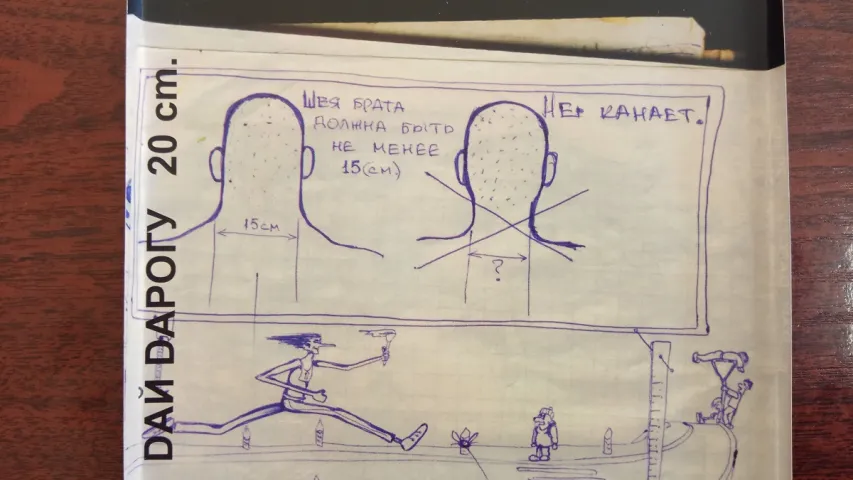 DАЙ DАРОГУ 20 cm.
ШЕЯ БРАТА
ДОЛЖНА БЫТЬ
НЕ МЕНЕЕ
15(см)
15см
НЕ КАНАЕТ.
?